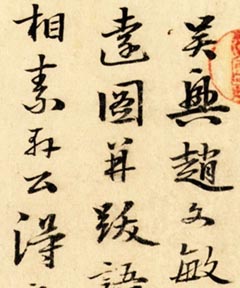 吴興趙文敏
遠圖并跋語
相素公得